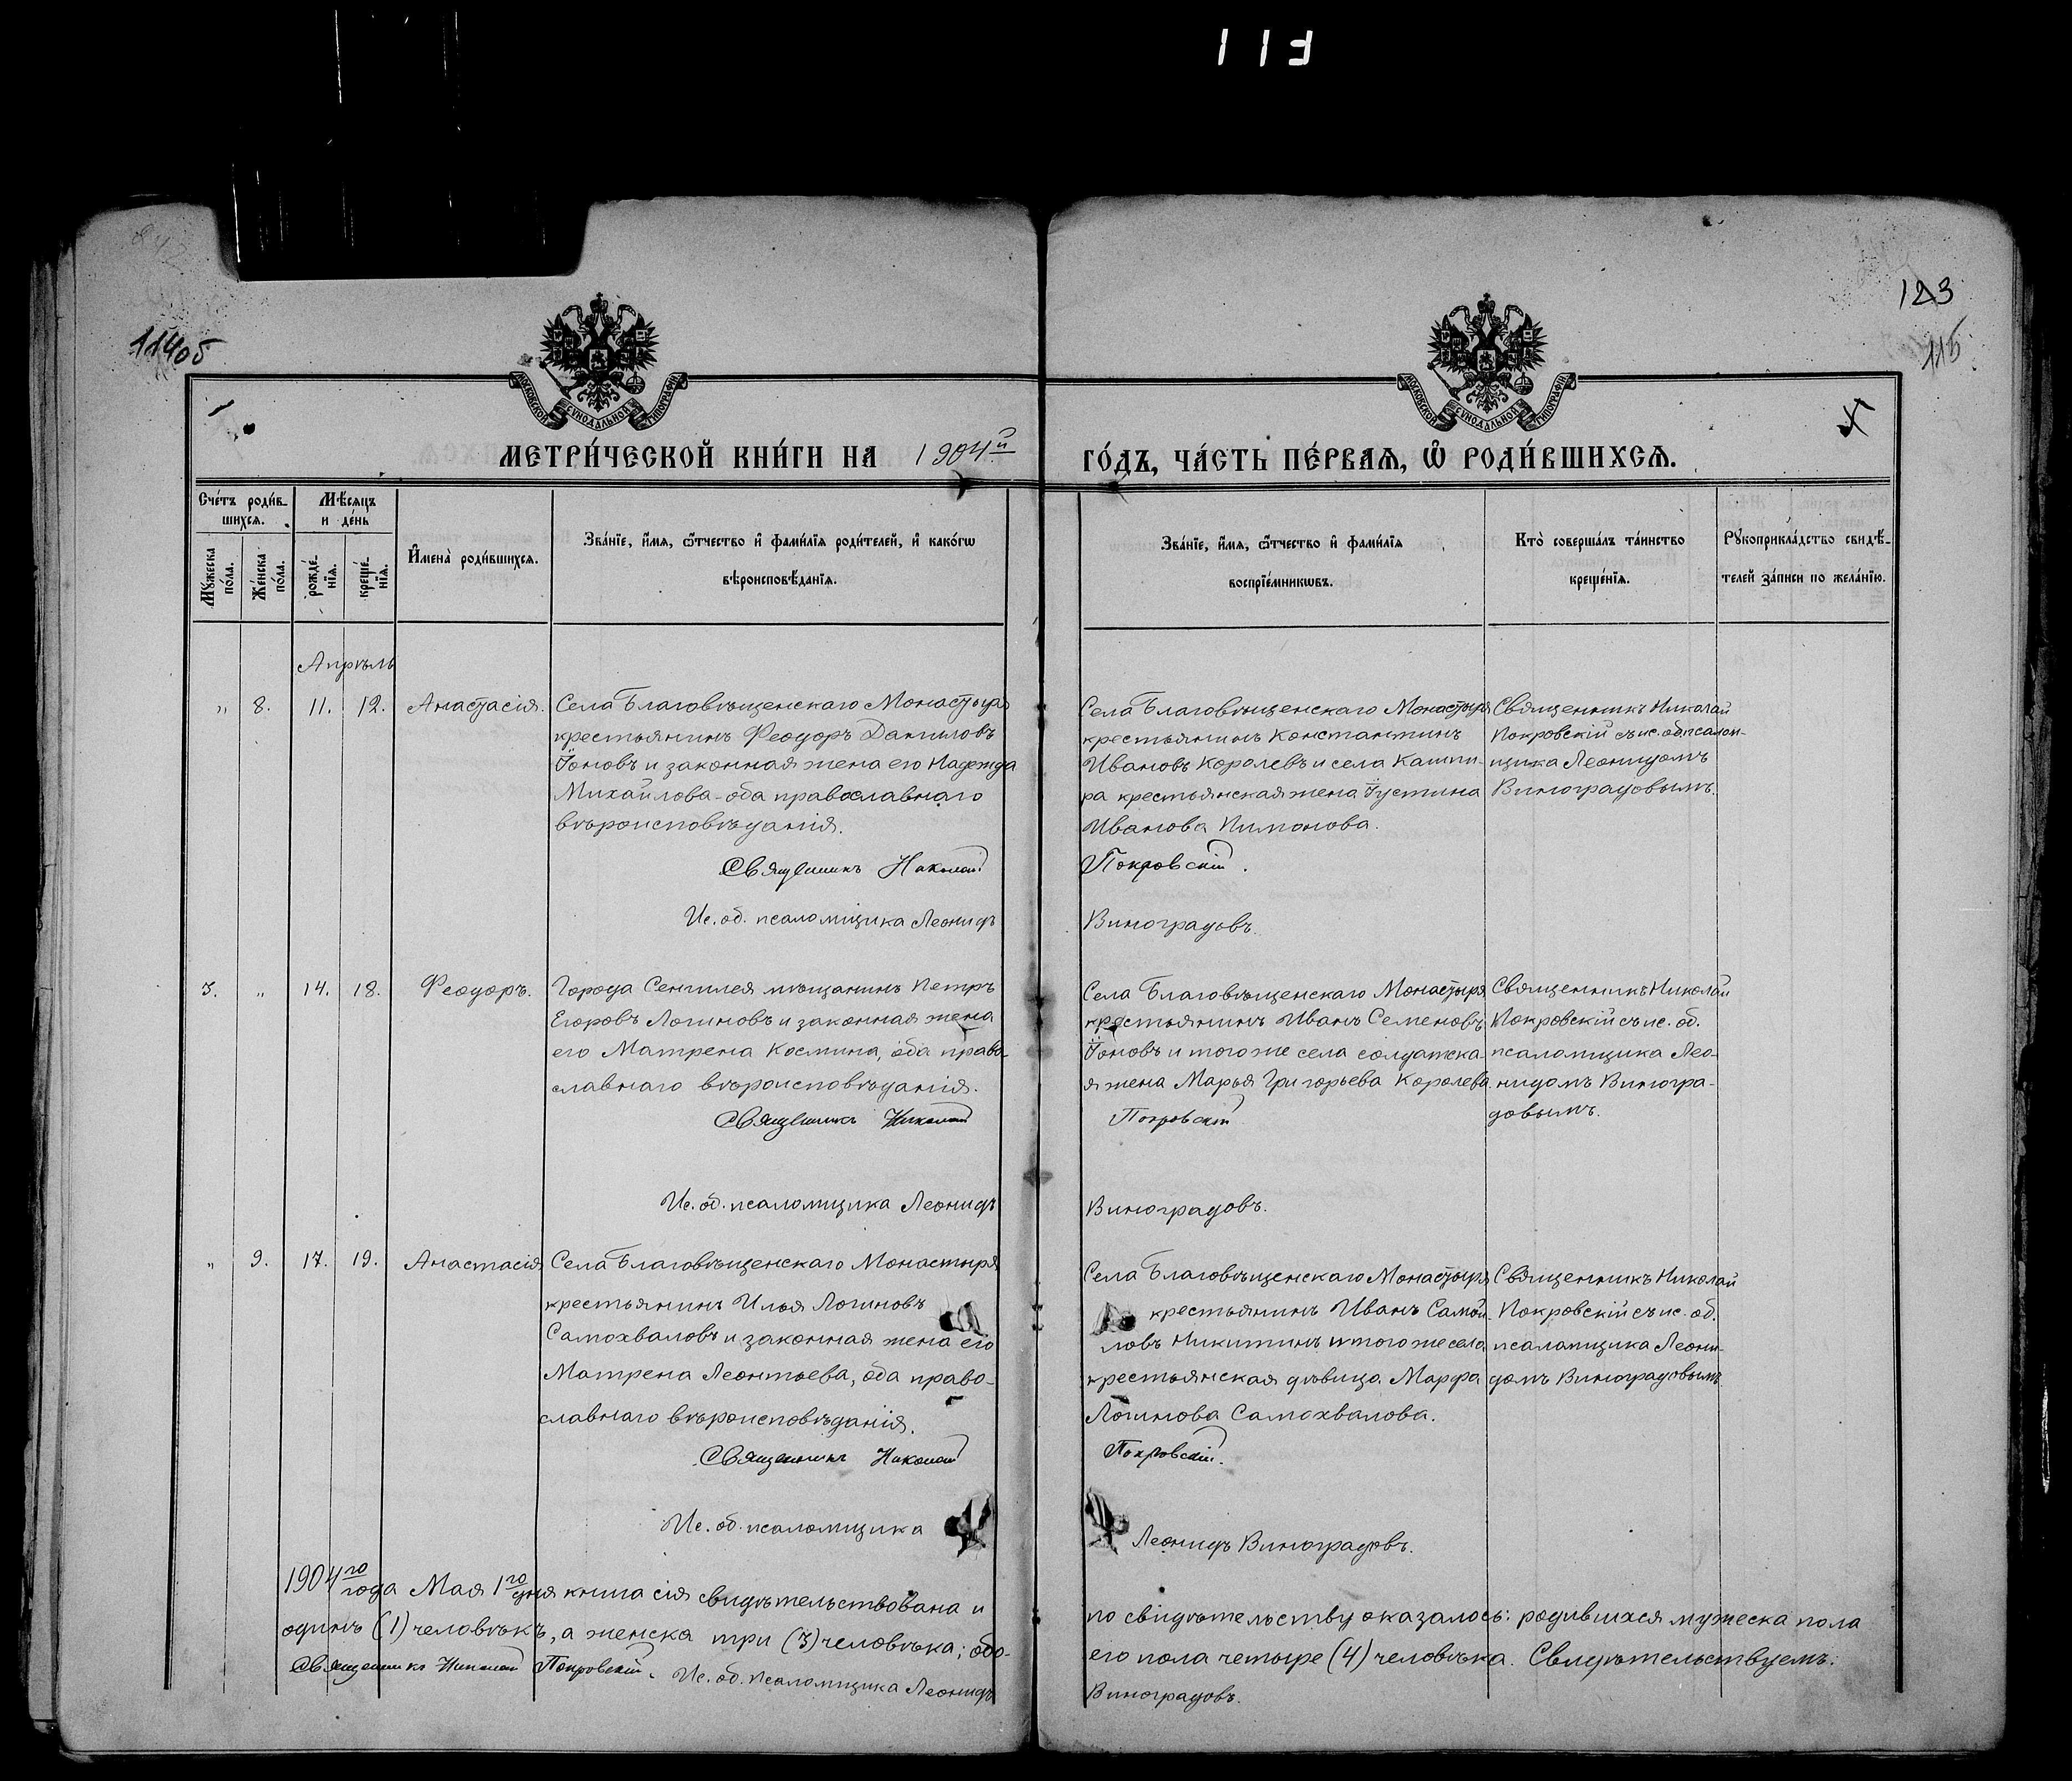 113
114об
123
115
МОСКОВСКОЙ СѴНОДАЛЬНОЙ ТИПОГРАФІИ
МОСКОВСКОЙ СѴНОДАЛЬНОЙ ТИПОГРАФІИ
МЕТРИ́ЧЕСКОЙ КНИ́ГИ НА 1904й
ГО́ДЪ, ЧА́СТЬ ПЕ́РВАѦ, Ѽ РОДИ́ВШИХСѦ.
Сче́тъ роди́в-
шихсѧ.
Мꙋ́жеска по́ла.
Же́нска по́ла.
Мѣ́сѧцъ
и де́нь
рожде́-
нїѧ.
креще́-
нїѧ.
И҆мена̀ роди́вшихсѧ.
Зва́нїе, и҆́мѧ, ѻ҆́тчество и҆ фами́лїѧ роди́телей, и҆ како́гѡ
вѣроисповѣ́данїѧ.
Зва́нїе, и҆́мѧ, ѻ҆́тчество и҆ фами́лїѧ
воспрїе́мникѡвъ.
Кто̀ соверша́лъ та́инство
креще́нїѧ.
Рꙋкоприкла́дство свидѣ́-
телей за́писи по жела́нїю.
Апрѣль
„ 8. 11. 12. Анастасія.
Села Благовѣщенскаго Монастыря
крестьянинъ Феодоръ Даниловъ
Іоновъ и законная жена его Надежда
Михайлова - оба православнаго
вѣроисповѣданія.
Священникъ Николай
Ис. об. псаломщика Леонидъ
Села Благовѣщенскаго Монастыря
крестьянинъ Константинъ
Ивановъ Королевъ и села Кашпи-
ра крестьянская жена Іустина
Иванова Пимонова.
Покровскій.
Виноградовъ.
Священникъ Николай
Покровскій съ ис. об. псалом-
щика Леонидомъ
Виноградовымъ.
3. „ 14. 18. Феодоръ.
Города Сенгилея мѣщанинъ Петръ
Егоровъ Логиновъ и законная жена
его Матрена Космина, оба право-
славнаго вѣроисповѣданія.
Священникъ Николай
Ис. об. псаломщика Леонидъ
Села Благовѣщенскаго Монастыря
крестьянинъ Иванъ Семеновъ
Іоновъ и того же села солдатска-
я жена Марья Григорьева Королева
Покровскій
Виноградовъ.
Священникъ Николай
Покровскій съ ис. об.
псаломщика Лео-
нидомъ Виногра-
довымъ.
„ 9. 17. 19. Анастасія
Села Благовѣщенскаго Монастыря
крестьянинъ Илья Логиновъ
Самохваловъ и законная жена его
Матрена Леонтьева, оба право-
славнаго вѣроисповѣданія.
Священникъ Николай
Ис. об. псаломщика
Села Благовѣщенскаго Монастыря
крестьянинъ Иванъ Самой-
ловъ Никитинъ и того же села
крестьянская дѣвица Марфа
Логинова Самохвалова.
Покровскій.
Леонидъ Виноградовъ.
Священникъ Николай
Покровскій съ ис. об.
псаломщика Леони-
домъ Виноградовымъ
1904го года Мая 1го дня книга сія свидѣтельствована и
по свидѣтельству оказалось: родившихся мужеска пола
одинъ (1) человѣкъ, а женска три (3) человѣка; обо-
его пола четыре (4) человѣка. Свидѣтельствуемъ:
Священникъ Николай Покровскій. Ис. об. псаломщика Леонидъ
Виноградовъ.